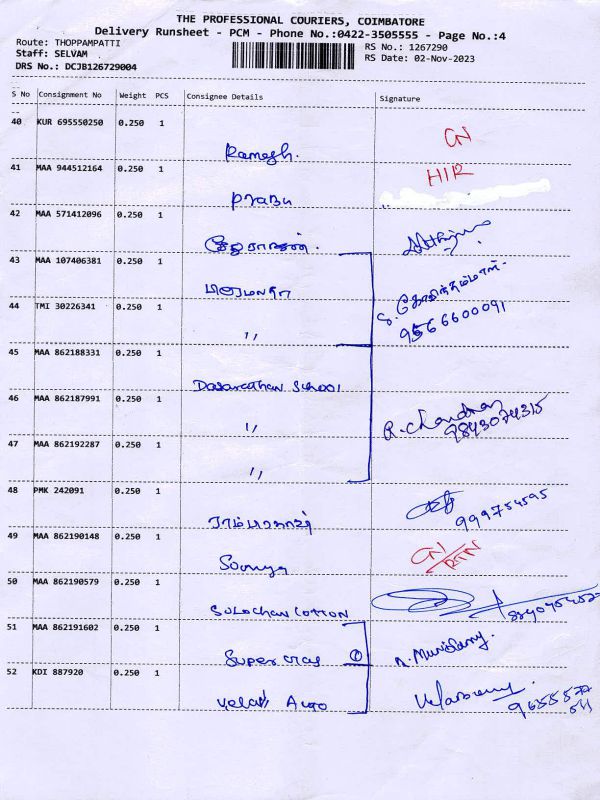 THE PROFESSIONAL COURIERS, COIMBATORE
Delivery Runsheet - PCM - Phone No.:0422-3505555 - Page No.:4
Route: THOPPAMPATTI
Staff: SELVAM
DRS No.: DCJB126729004
RS No.: 1267290
RS Date: 02-Nov-2023
S No Consignment No Weight PCS Consignee Details Signature
40 KUR 695550250 0.250 1
Ramesh. CN
41 MAA 944512164 0.250 1
Prabu HIR
42 MAA 571412096 0.250 1
43 MAA 107406381 0.250 1
44 TMI 30226341 0.250 1
9566600091
〃
45 MAA 862188331 0.250 1
Dasarathan School
46 MAA 862187991 0.250 1
〃 R. Chandran
9843074315
47 MAA 862192287 0.250 1
〃
48 PMK 242091 0.250 1
999754595
49 MAA 862190148 0.250 1
Soorya CN/RTN
50 MAA 862190579 0.250 1
Sulochan Cotton
51 MAA 862191602 0.250 1
Super
52 KDI 887920 0.250 1
Auto